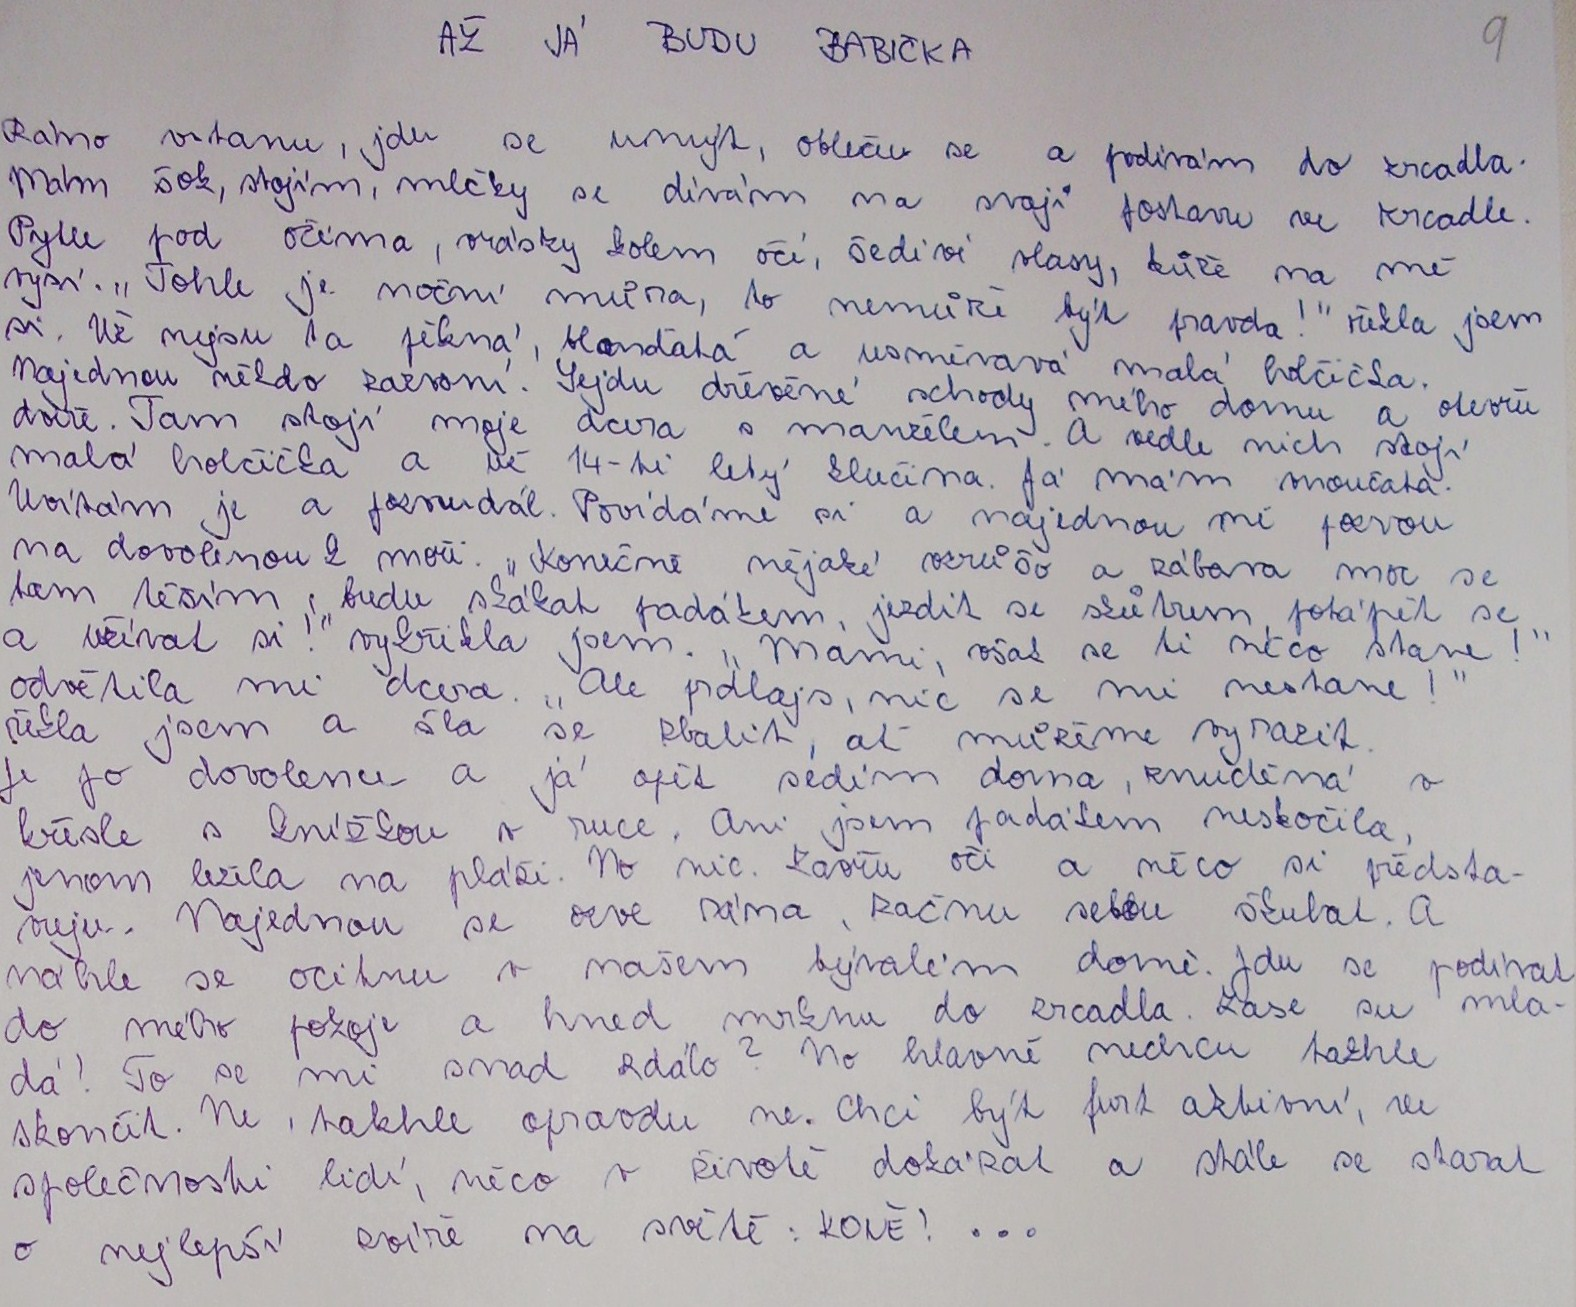 AŽ JÁ BUDU BABIČKA
9
Ráno vstanu, jdu se umýt, obleču se a podívám do zrcadla.
Mám šok, stojím, mlčky se dívám na svojí postavu ve zrcadle.
Pytle pod očima, vrásky kolem očí, šediví vlasy, kůže na mě
visí. „Tohle je noční můra, to nemůže být pravda!" řekla jsem
si. Už nejsu ta pěkná, blonďatá a usměvavá malá holčička.
Najednou někdo zazvoní. Sejdu dřevěné schody mého domu a otevřu
dveře. Tam stojí moje dcera s manželem. A vedle nich stojí
malá holčička a už 14-ti letý klučina. Já mám vnoučata.
Uvítám je a pozvu dál. Povídáme si a najednou mě pozvou
na dovolenou k moři. „Konečně nějaké vzrůšo a zábava moc se
tam těším, budu skákat padákem, jezdit se skůtrem, potápět se
a užívat si!" vykřikla jsem. „Mami, však se ti něco stane!"
odvětila mi dcera. „Ale prdlajs, nic se mi nestane!"
řekla jsem a šla se zbalit, ať můžeme vyrazit.
Je po dovolence a já opět sedím doma, znuděná v
křesle s knížkou v ruce. Ani jsem padákem neskočila,
jenom ležela na pláži. No nic. Zavřu oči a něco si předsta-
vuju. Najednou se ozve rána, začnu sebou škubat. A
náhle se ocitnu v našem bývalém domě. Jdu se podívat
do mého pokoje a hned mrknu do zrcadla. Zase su mla-
dá! To se mi snad zdálo? No hlavně nechcu takhle
skončit. Ne, takhle opravdu ne. Chci být furt aktivní, ve
společnosti lidí, něco v životě dokázat a stále se starat
o nejlepší zvíře na světě: KONĚ! ...